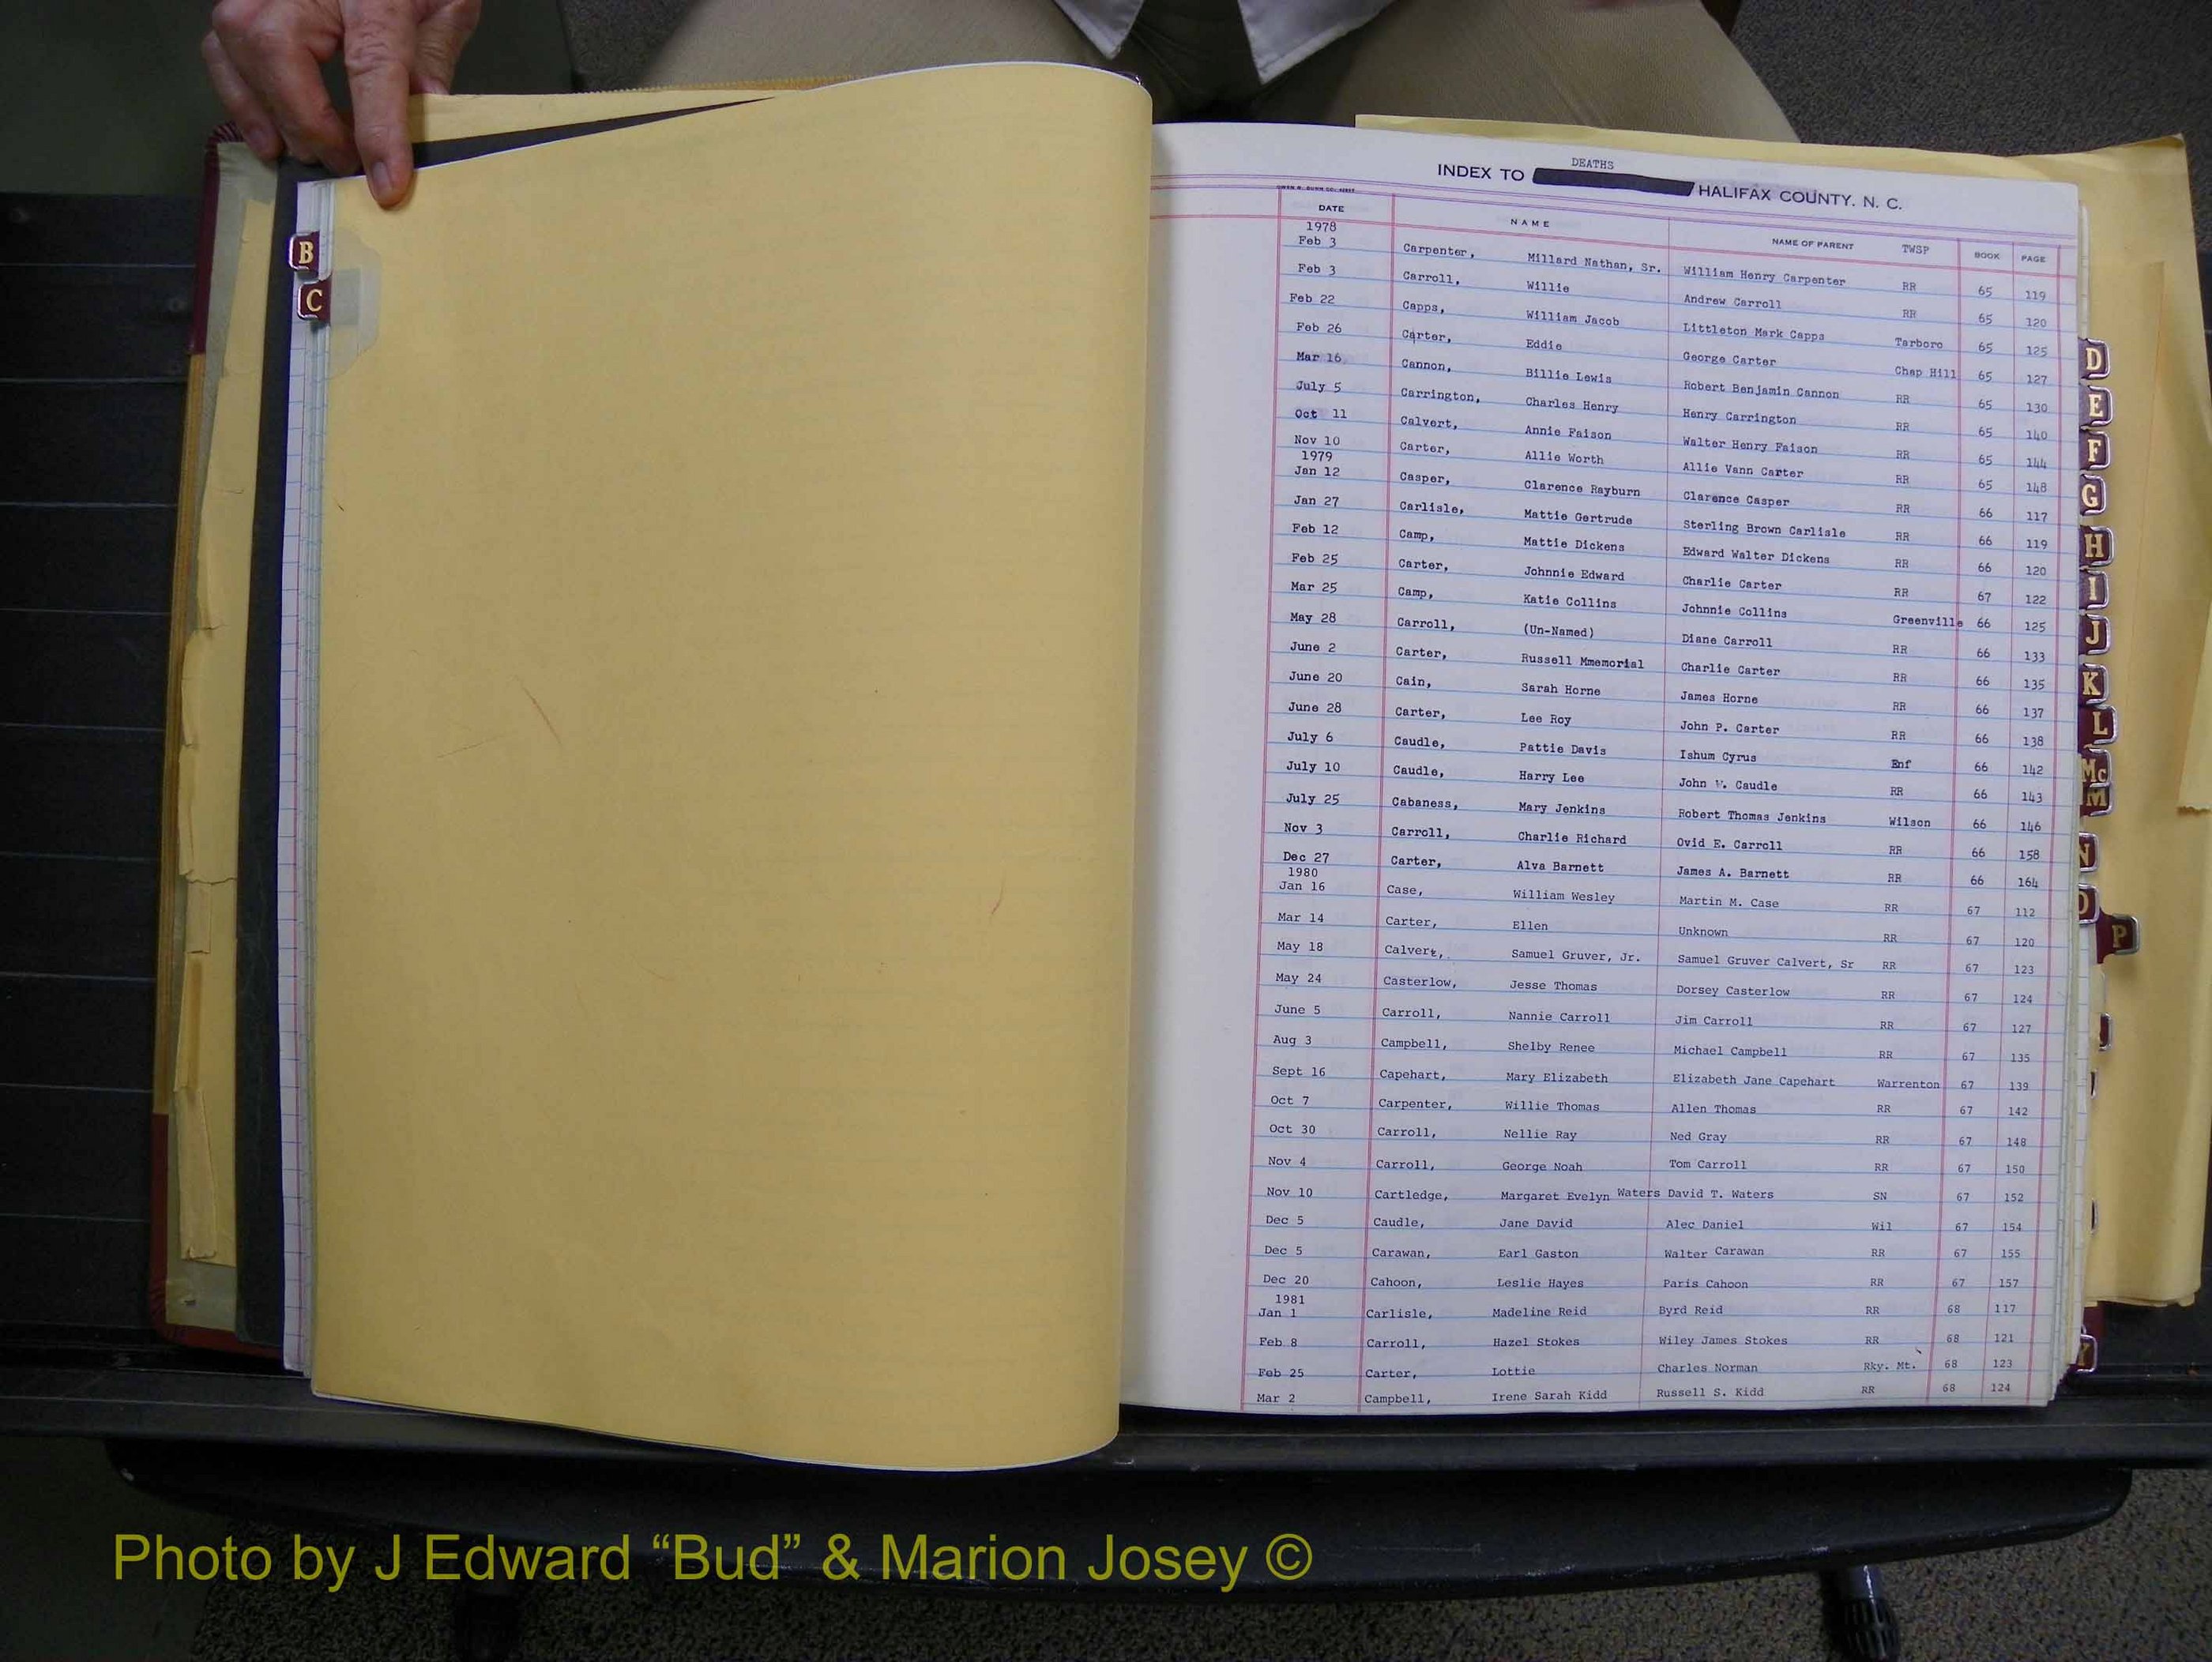 B
C
DEATHS
INDEX TO HALIFAX COUNTY. N. C.
DATE NAME NAME OF PARENT TWSP BOOK PAGE
1978
Feb 3 Carpenter, Millard Nathan, Sr. William Henry Carpenter RR 65 119
Feb 3 Carroll, Willie Andrew Carroll RR 65 120
Feb 22 Capps, William Jacob Littleton Mark Capps Tarboro 65 125
Feb 26 Carter, Eddie George Carter Chap Hill 65 127
Mar 16 Cannon, Billie Lewis Robert Benjamin Cannon RR 65 130
July 5 Carrington, Charles Henry Henry Carrington RR 65 140
Oct 11 Calvert, Annie Faison Walter Henry Faison RR 65 144
Nov 10 Carter, Allie Worth Allie Vann Carter RR 65 148
1979
Jan 12 Casper, Clarence Rayburn Clarence Casper RR 66 117
Jan 27 Carlisle, Mattie Gertrude Sterling Brown Carlisle RR 66 119
Feb 12 Camp, Mattie Dickens Edward Walter Dickens RR 66 120
Feb 25 Carter, Johnnie Edward Charlie Carter RR 67 122
Mar 25 Camp, Katie Collins Johnnie Collins Greenville 66 125
May 28 Carroll, (Un-Named) Diane Carroll RR 66 133
June 2 Carter, Russell Mmemorial Charlie Carter RR 66 135
June 20 Cain, Sarah Horne James Horne RR 66 137
June 28 Carter, Lee Roy John P. Carter RR 66 138
July 6 Caudle, Pattie Davis Ishum Cyrus Enf 66 142
July 10 Caudle, Harry Lee John W. Caudle RR 66 143
July 25 Cabaness, Mary Jenkins Robert Thomas Jenkins Wilson 66 146
Nov 3 Carroll, Charlie Richard Ovid E. Carroll RR 66 158
Dec 27 Carter, Alva Barnett James A. Barnett RR 66 164
1980
Jan 16 Case, William Wesley Martin M. Case RR 67 112
Mar 14 Carter, Ellen Unknown RR 67 120
May 18 Calvert, Samuel Gruver, Jr. Samuel Gruver Calvert, Sr RR 67 123
May 24 Casterlow, Jesse Thomas Dorsey Casterlow RR 67 124
June 5 Carroll, Nannie Carroll Jim Carroll RR 67 127
Aug 3 Campbell, Shelby Renee Michael Campbell RR 67 135
Sept 16 Capehart, Mary Elizabeth Elizabeth Jane Capehart Warrenton 67 139
Oct 7 Carpenter, Willie Thomas Allen Thomas RR 67 142
Oct 30 Carroll, Nellie Ray Ned Gray RR 67 148
Nov 4 Carroll, George Noah Tom Carroll RR 67 150
Nov 10 Cartledge, Margaret Evelyn Waters David T. Waters SN 67 152
Dec 5 Caudle, Jane David Alec Daniel Wil 67 154
Dec 5 Carawan, Earl Gaston Walter Carawan RR 67 155
Dec 20 Cahoon, Leslie Hayes Paris Cahoon RR 67 157
1981
Jan 1 Carlisle, Madeline Reid Byrd Reid RR 68 117
Feb 8 Carroll, Hazel Stokes Wiley James Stokes RR 68 121
Feb 25 Carter, Lottie Charles Norman Rky. Mt. 68 123
Mar 2 Campbell, Irene Sarah Kidd Russell S. Kidd RR 68 124
D
E
F
G
H
I
J
K
L
Mc
M
N
O
P
Photo by J Edward “Bud” & Marion Josey ©